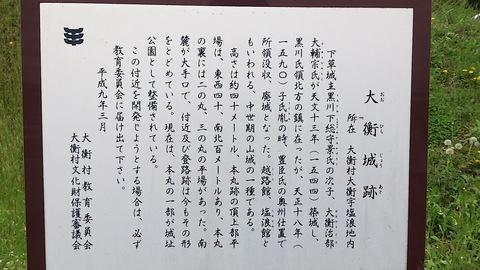 大衡城跡
おお ひら じょう あと
所在 大衡村大衡字塩浪地内
下草城主黒川下総守景氏の次子、大衡治部
大輔宗氏が天文十三年（一五四四）築城し、
黒川氏領北方の鎮に在ったが、天正十八年（
一五九〇）子氏胤の時、豊臣氏の奥州仕置で
所領没収、廃城となった。越路館、塩浪館と
もいわれる、中世期の山城の一種である。
高さは約四十メートル、本丸跡の頂上部平
場は、東西四十、南北百メートルあり、本丸
の裏には二の丸、三の丸の平場があった。南
麓が大手口で、付近及び登路跡は今もその形
をとどめている。現在は、本丸の一部が城址
公園として整備されている。
この付近を開発しようとする場合は、必ず
教育委員会に届け出て下さい。
平成九年三月
大衡村教育委員会
大衡村文化財保護審議会